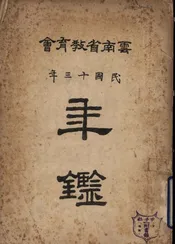 雲南省教育會
民國十三年
年鑑